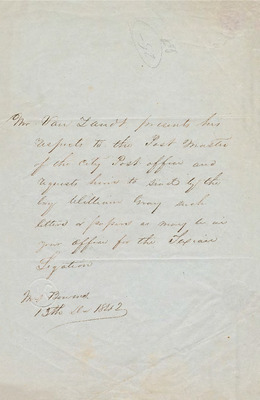 Mr Van Zandt presents his
respects to the Post Master
of the City Post office and
requests him to send by the
boy William Gray such
letters & papers as may be in
your office for the Texian
Legation
13th 1842